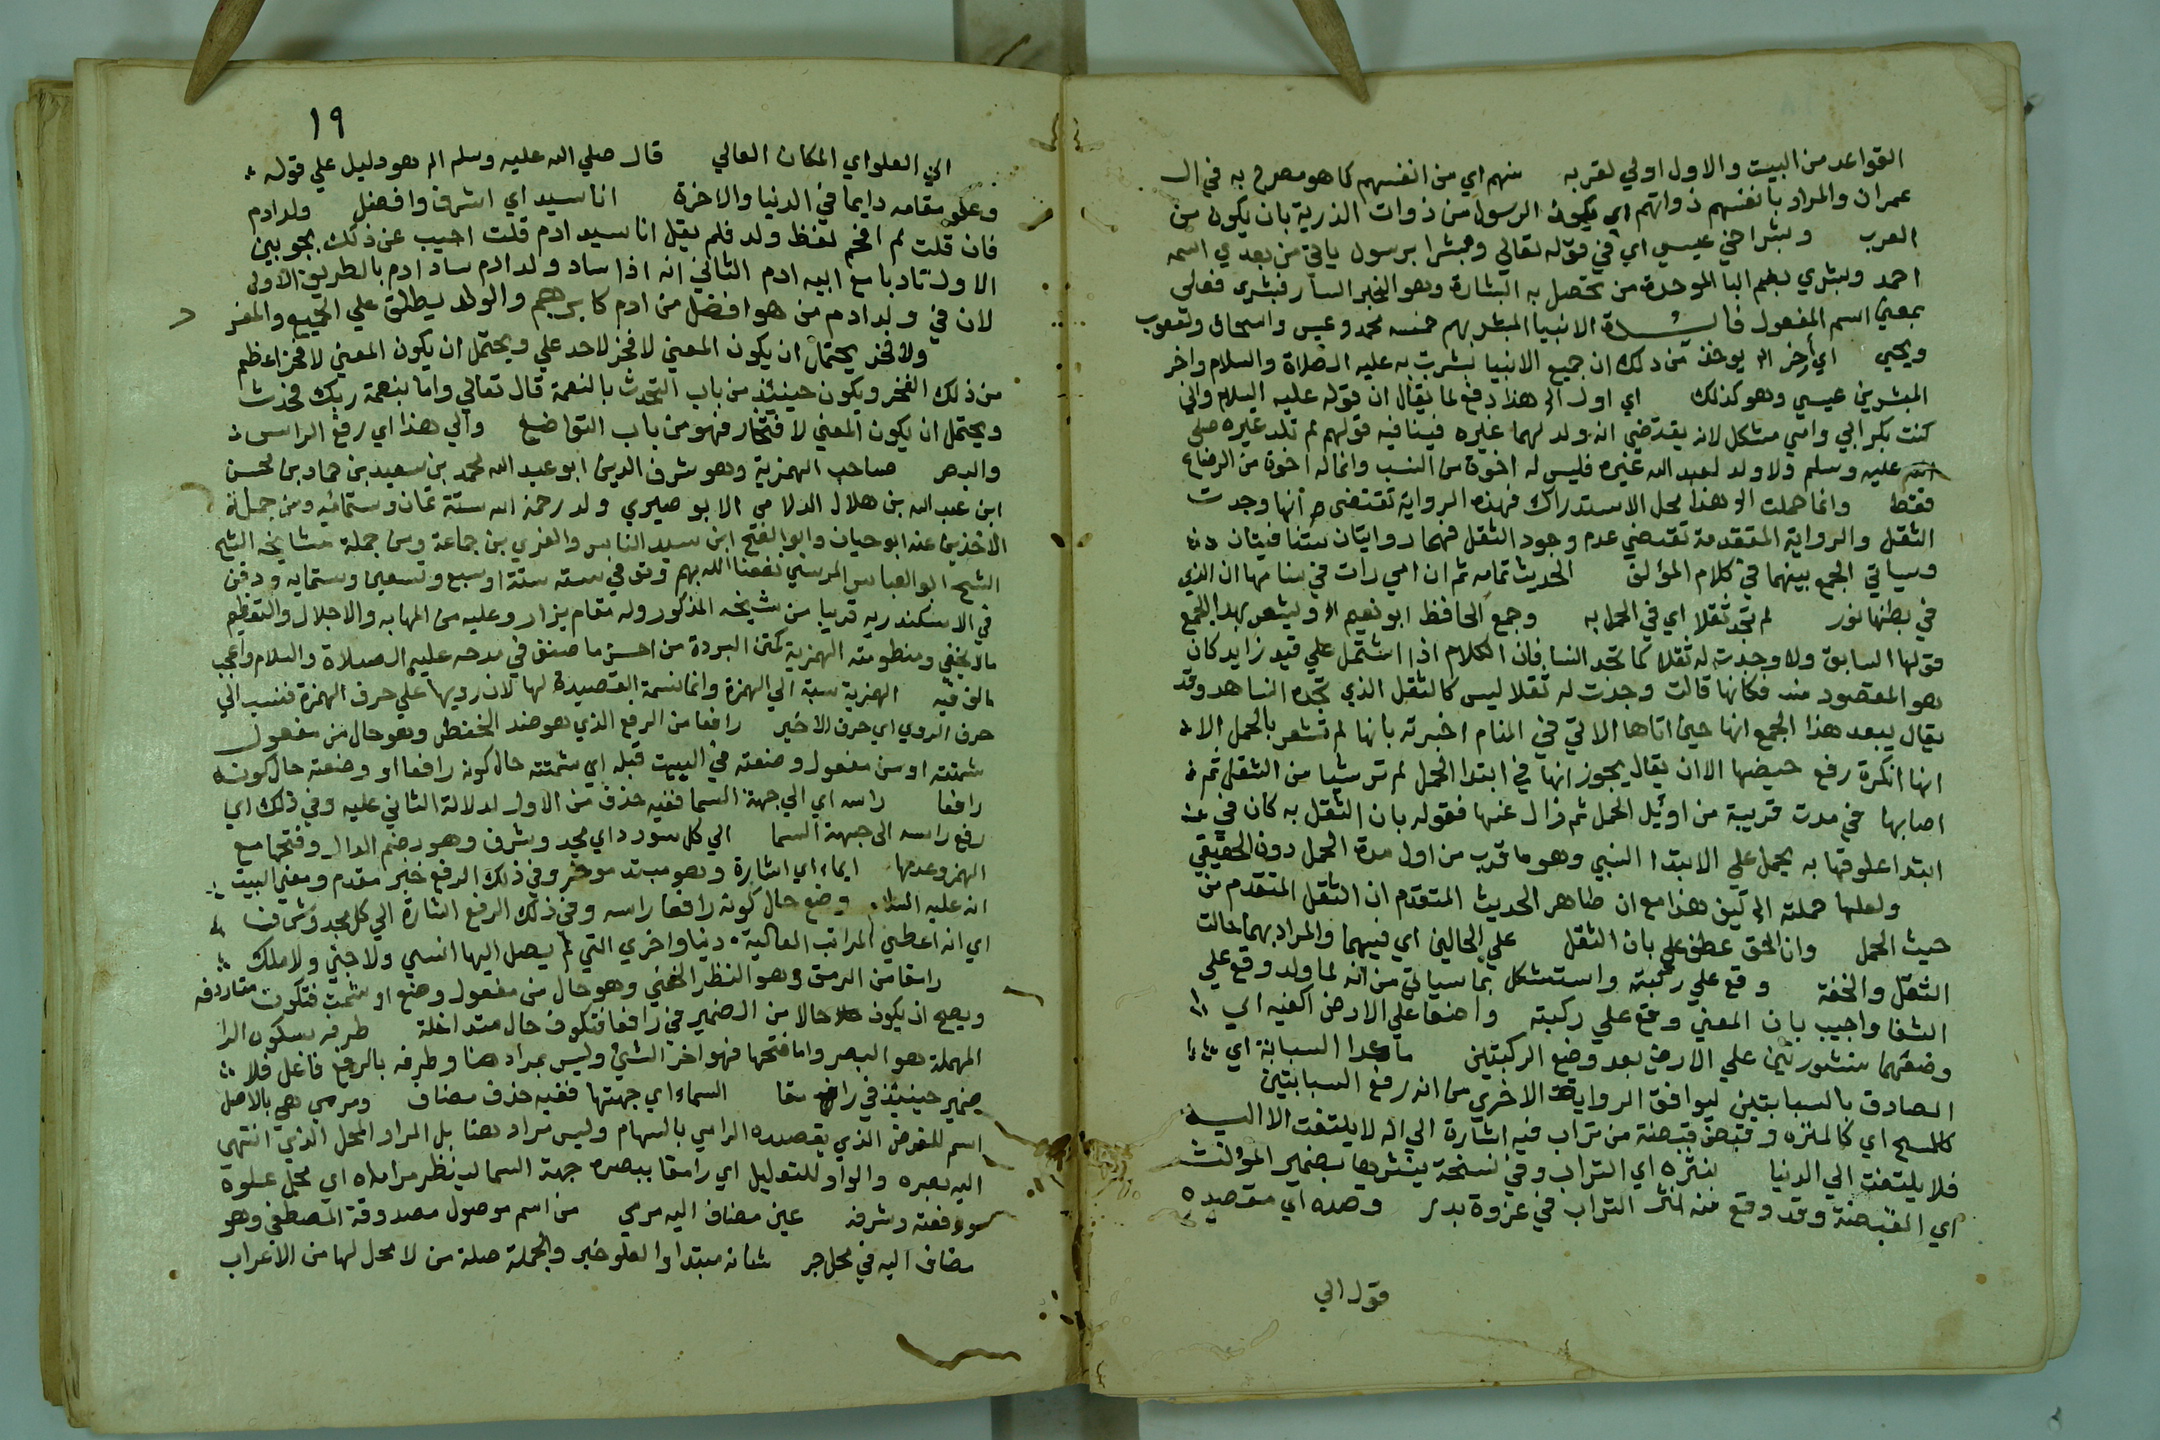 القواعد من البيت والاول اولي لقربه منهم اي من انفسهم كما هو مصرح به في ال
عمران والمراد بانفسهم ذواتهم اي يكون الرسول من ذوات الذرية بان يكون من
العرب وبشرا خي عيسي اي في قوله تعالي ومبشرا برسول ياتي من بعدي اسمه
احمد وبشري بضم البا الموحدة من تحصل به البشارة وهو الخبر السار فبشرى فعلى
بمعني اسم المفعول الانبيا المبشر بهم خمسه محمد وعيسى واسحاق ويعقوب
ويحيي اي اخر الخ يوخذ من ذلك ان جميع الانبيا بشرت به عليه الصلاة والسلام واخر
المبشرين عيسي وهو كذلك اي اول الخ هذا دفع لما يقال ان قوله عليه السلام واني
كنت بكر ابي وامي مشكل لانه يقتضي انه ولد لهما غيره فينافيه قولهم لم تلد غيره صلي
الله عليه وسلم ولا ولد لعبد الله غيره فليس له اخوة من النسب وانما له اخوة من الرضاع
فقط وانما حملت الخ هذا محل الاستدراك فهذه الرواية تقتضي انها وجدت
الثقل والرواية المتقدمة تقتضي عدم وجود الثقل فهما روايتان متنافيتان
وسياتي الجمع بينهما في كلام المؤلف الحديث تمامه ثم ان امي رات في منامها ان الذي
في بطنها نور لم تجد ثقلا اي في الحمل به وجمع الحافظ ابو نعيم الخ ويشعر بهذا الجمع
قولها السابق ولا وجدت له ثقلا كما تجد النسا فان الكلام اذا اشتمل علي قيد زايد كان
هو المقصود منه فكانها قالت وجدت له ثقلا ليس كالثقل الذي تجده النسا هذا وقد
يقال يبعد هذا الجمع انها حين اتاها الاتي في المنام اخبرته بانها لم تشعر بالحمل الا
انها انكرة رفع حيضها الا ان يقال يجوز انها في ابتدا الحمل لم تر شيا من الثقل ثم
اصابها في مدت قريبة من اويل الحمل ثم زال عنها فقوله بان الثقل به كان في عند
ابتدا علوقها به يحمل علي الابتدا النسبي وهو ما قرب من اول مدة الحمل دون الحقيقي
ولعلها حملته الخ هذا مع ان ظاهر الحديث المتقدم ان الثقل المتقدم من
حيث الحمل وان الخفة عطف علي بان الثقل علي الحالين اي فيهما والمراد بهما حالت
الثقل والخفة وقع علي ركبته واستشكل بما سياتي من انه لما ولد وقع علي
الشفا واجيب بان المعني وقع علي ركبته واضعا علي الارض اكفيه اي
وضعهما منشورتين علي الارض بعد وضع الركبتين ما عدا السبابة اي
الصادق بالسبابتين ليوافق الرواية الاخري من انه رفع السبابتين
كالمسبح اي كالمنزه وقبض قبضة من تراب فيه اشارة الي انه لا يلتفت الا اليه
فلا يلتفت الي الدنيا نشره اي التراب وفي نسخة ينشرها بضمير المؤنث
اي القبضة وقد وقع منه نثر التراب في غزوة بدر وصده اي مقصده
قول الي
١٩
الي العلو اي المكان العالي قال صلي الله عليه وسلم الخ هو دليل علي قوله
وعلو مقامه دايما في الدنيا والاخرة انا سيد اي اشرف وافضل ولد ادم
فان قلت لم اقحم لفظ ولد فلم يقل انا سيد ادم قلت اجيب عن ذلك بجوبين
الاول تادبا مع ابيه ادم الثاني انه اذا ساد ولد ادم ساد ادم بالطريق الاولى
لان في ولد ادم من هو افضل من ادم كابرهيم والولد يطلق علي الجميع والمفر
د
ولا فخر يحتمل ان يكون المعني لا فخر لاحد علي ويحتمل ان يكون المعني لا فخر اعظم
من ذلك الفخر ويكون حينيذ من باب التحدث بالنعمة قال تعالي واما بنعمة ربك فحدث
ويحتمل ان يكون المعني لا افتخار فهو من باب التواضع والي هذا اي رفع الراس
والبصر صاحب الهمزية وهو شرف الدين ابو عبد الله محمد بن سعيد بن حماد بن محسن
ابن عبد الله بن هلال الدلامي الابو صيري ولد رحمة الله سنة ثمان وستمائيه ومن جملة
الاخذين عنه ابو حيان وابو الفتح ابن سيد الناس والعزي بن جماعة ومن جملة مشايخه الشيخ
الشيخ ابو العباس المرسي نفعنا الله بهم وتوفي سنه ستة او سبع وتسعين وستمايه ودفن
في الاسكندريه قريبا من شيخه المذكور وله مقام يزار وعليه من المهابه والاجلال والتعظيم
مالا يخفي ومنظومته الهمزية كمتن البردة من احسن ما صنف في مدحه عليه الصلاة والسلام واعجب
ما لف فيه الهمزية نسبة الي الهمزة وانما نسمة القصيدة لها لان رويها علي حرف الهمزة فنسب الي
حرف الروي اي حرف الاخير رافعا من الرفع الذي هو ضد الخفض وهو حال من مفعول
شمتته او من مفعول وضعته في البيت قبله اي شمتته حال كونه رافعا او وضعته حال كونه
رافعا راسه اي الي جهة السما ففيه حذف من الاول لدلالة الثاني عليه وفي ذلك اي
رفع راسه الي جهة السما الي كل سودد اي مجد وشرف وهو بضم الدال وفتحها مع
الهمز وعدمها ايماء اي اشارة وهو مبتدا موخر وفي ذلك الرفع خبر مقدم ومعني البيت
انه عليه السلام وضع حال كونه رافعا راسه وفي ذلك الرفع اشارة الي كل مجد وشرف
اي انه اعطي المراتب العالية دنيا واخري التي لم يصل اليها انسي ولا جني ولا ملك
رامقا من الرمق وهو النظر الخفي وهو حال من مفعول وضع او شمت فتكون مترادفه
ويصح ان يكون حالا من الضمير في رافعا فتكون حال متداخلة طرفه بسكون الرا
المهملة هو البصر واما فتحها فهو اخر الشيئ وليس بمراد هنا وطرفه بالرفع فاعل فلا
ضمير حينيذ في رامقا السماء اي جهتها ففيه حذف مضاف ومرمي هي بالاصل
اسم للغرض الذي يقصده الرامي بالسهام وليس مراد هنا بل المراد المحل الذي انتهى
اليه بصره والواو للتعليل اي رامقا ببصره جهة السما لينظر مرماه اي محل علوة
ورفعته وشرفه عين مضاف اليه مرمي من اسم موصول مصدوقة المصطفي وهو
مضاف اليه في محل جر شانه مبتدا والعلو خبر والجملة صلة من لا محل لها من الاعراب